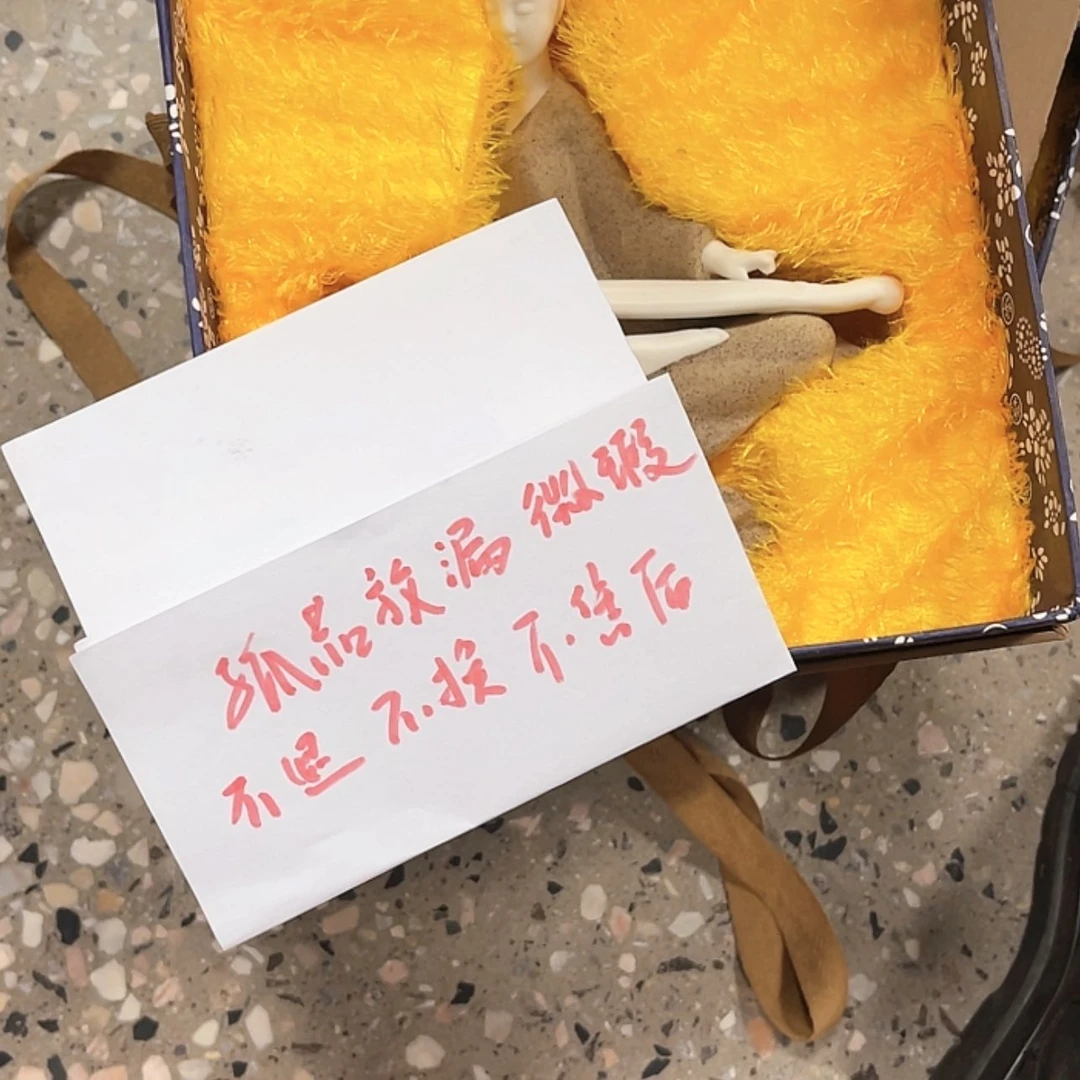 孤品放漏 微瑕
不退 不换 不售后